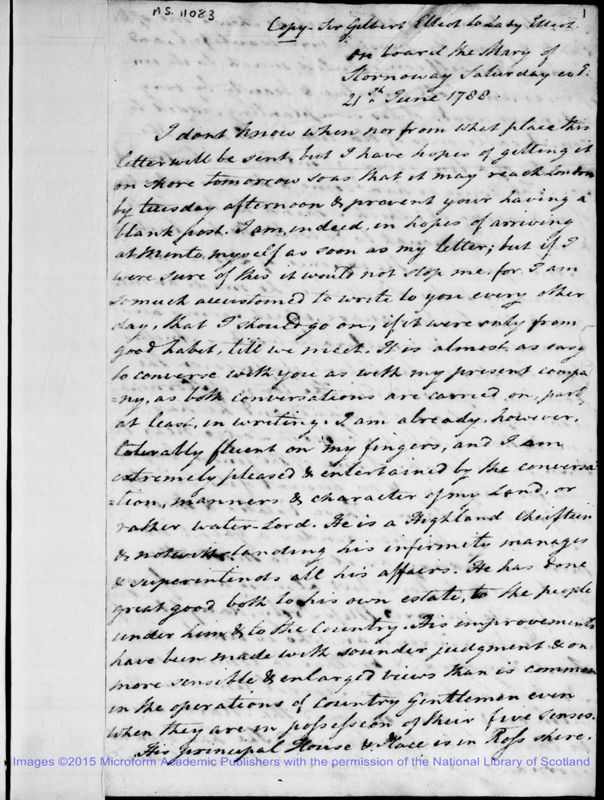 MS. 11083
1
Copy. Sir Gilbert Elliot to Lady Elliot.
On board the Mary of
Stornoway Saturday
21st June 1788.
I dont know when nor from what place this
letter will be sent, but I have hopes of getting it
on shore tomorrow so as that it may reach London
by tuesday afternoon & prevent your having a
blank post. I am, indeed, in hopes of arriving
at Minto myself as soon as my letter; but if I
were sure of this it would not stop me. for I am
so much accustomed to write to you every other
day, that I should go on, if it were only from
good habit, till we meet. It is almost as easy
to converse with you as with my present compa
=ny, as both conversations are carried on, part
at least, in writing. I am already, however,
tolerably fluent on my fingers, and I am
extremely pleased & entertained by the conversa
=tion, manners & character of my Land, or
rather water-Lord. He is a Highland Cheiftain
& notwithstanding his infirmity manages
& superintends all his affairs. He has done
great good both to his own estate, to the people
under him & to the Country. His improvements
have been made with sounder judgment & on
more sensible & enlarged views than is common
in the operations of Country Gentlemen even
when they are in possession of their five senses.
His principal House & Place is in Ross shire.
Images ©2015 Microform Academic Publishers with the permission of the National Library of Scotland